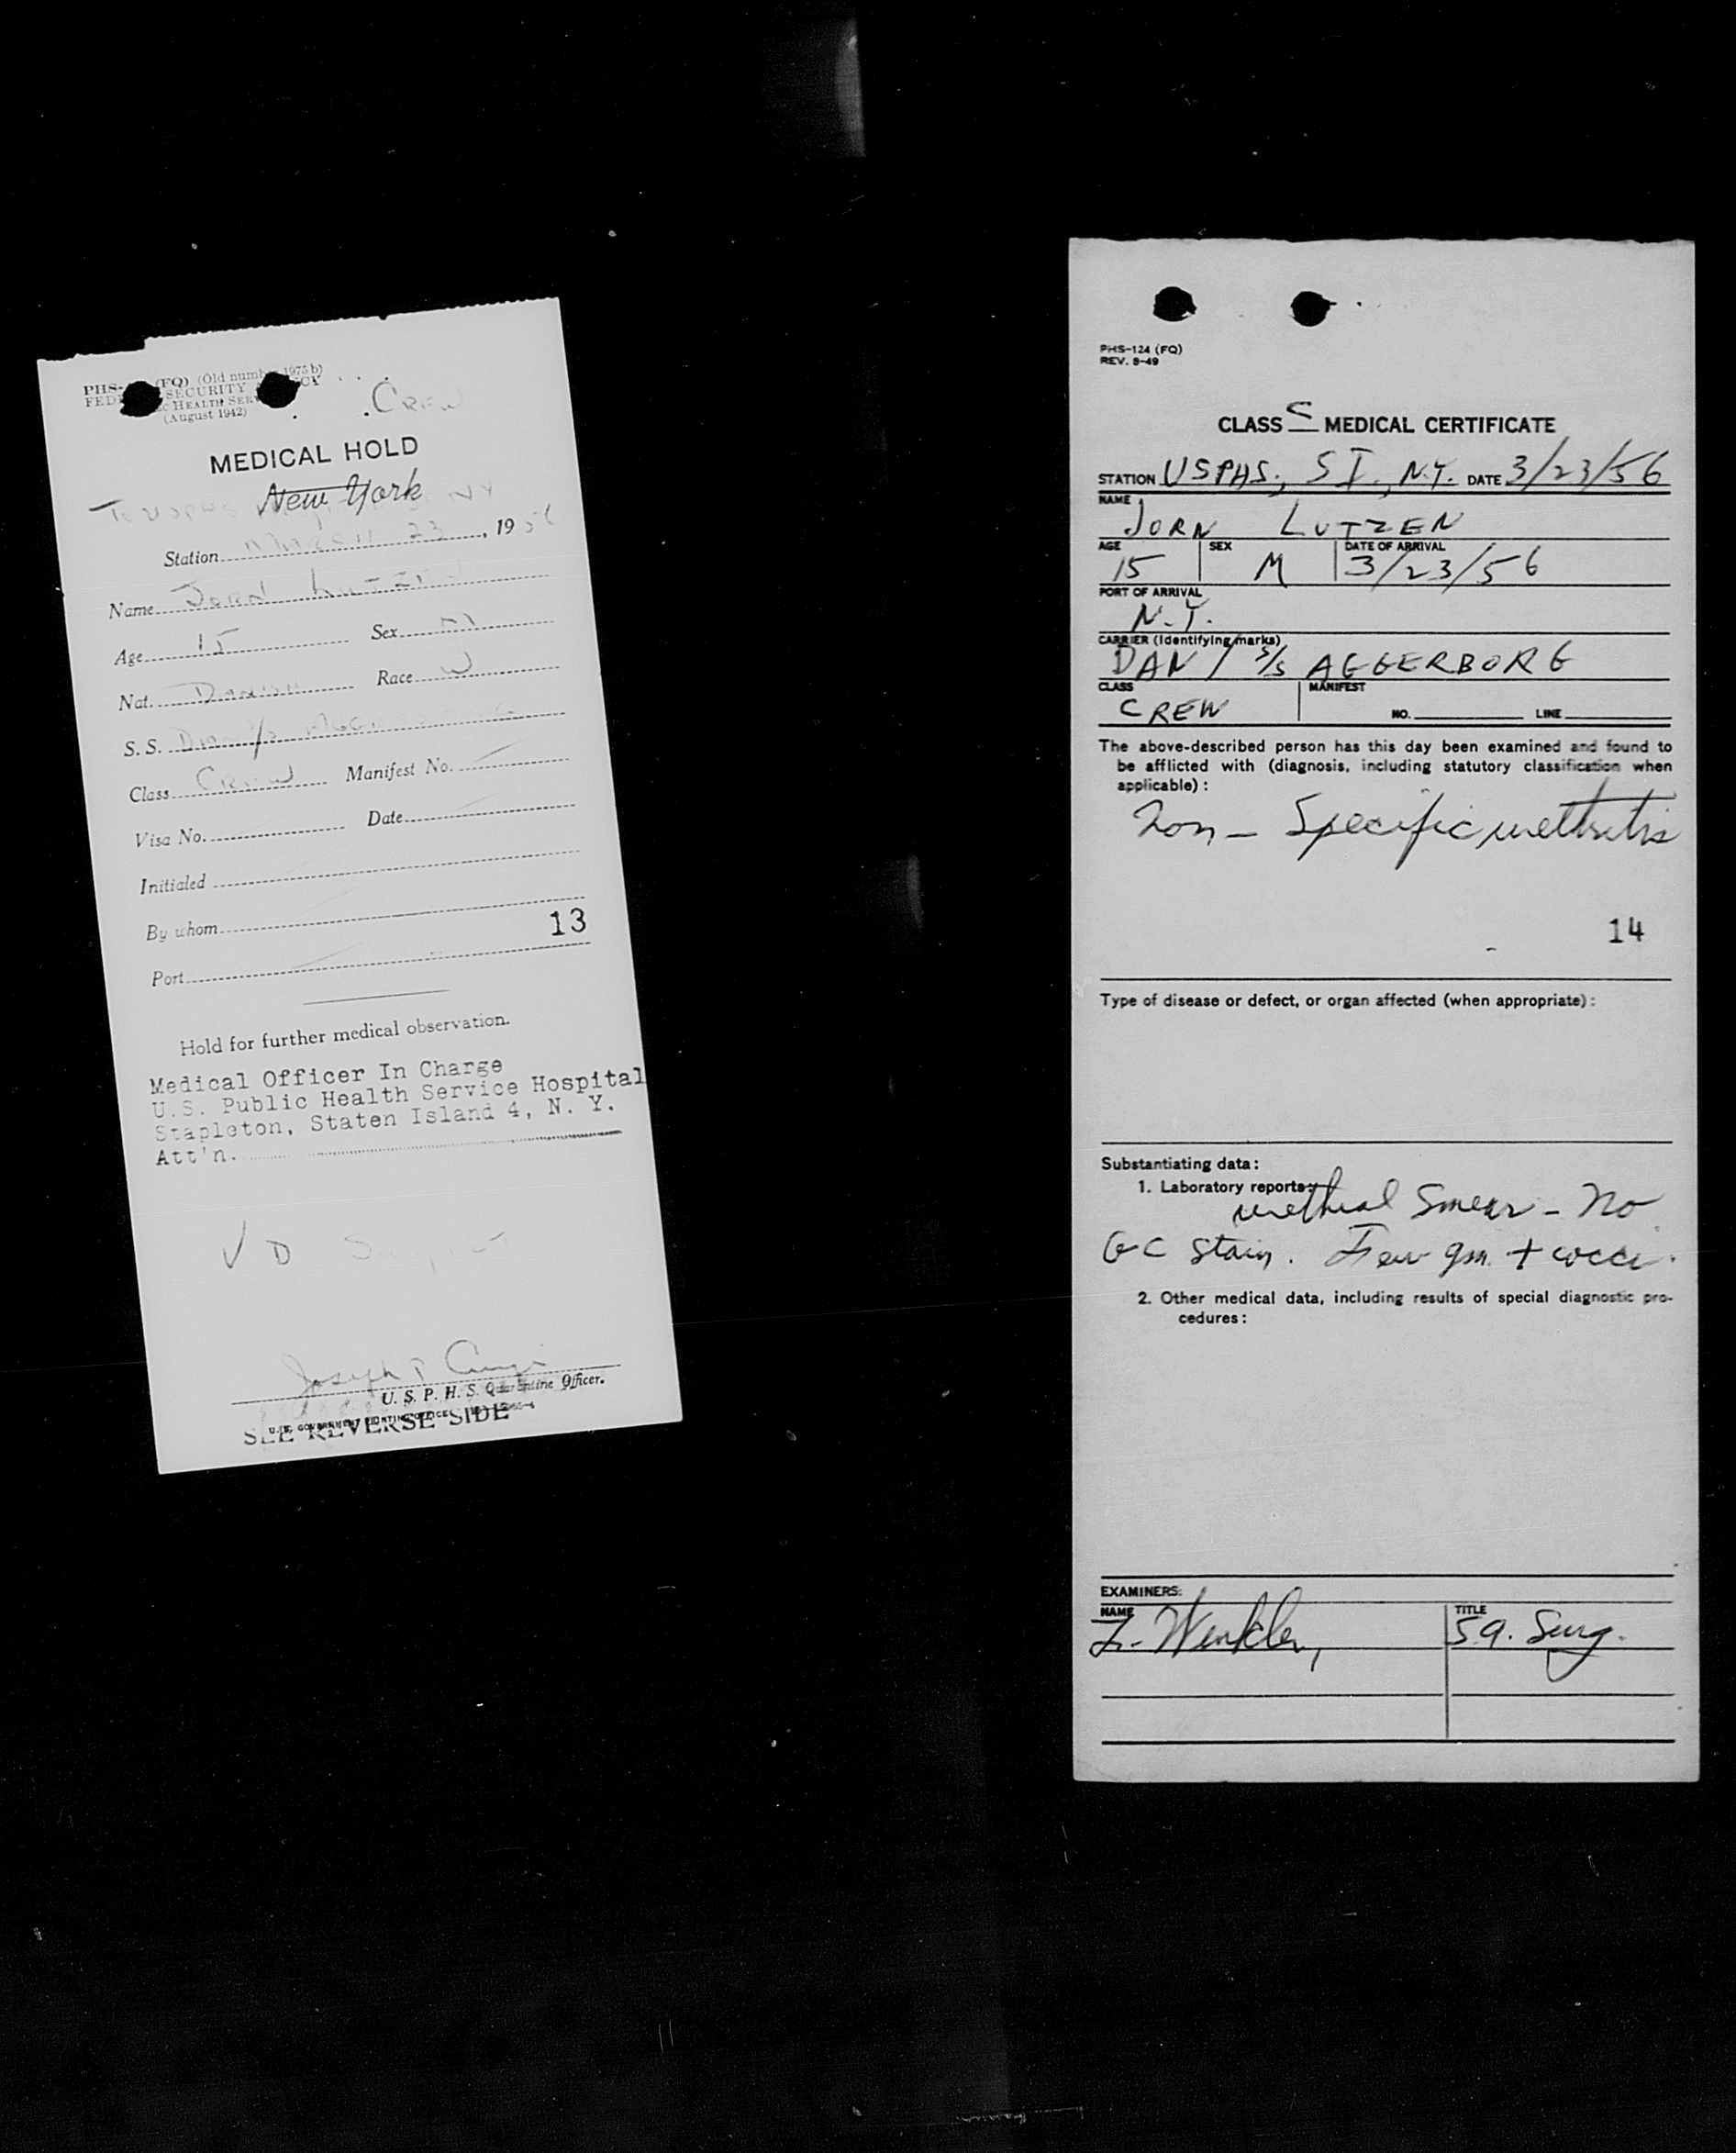 PHS- (FQ) (Old number 1975 b)
FED SECURITY
HEALTH SERV
(August 1942)
CREW
MEDICAL HOLD
New York
To USPHS NY
Station March 23, 1956
Name Jorn Lutzen
Age 15 Sex M
Nat. Danish Race W
S. S. Dan s/s
Class Crew Manifest No.
Visa No. Date
Initialed
By whom
13
Port
Hold for further medical observation.
Medical Officer In Charge
U.S. Public Health Service Hospital
Stapleton, Staten Island 4, N. Y.
Att'n.
V D
Joseph T
U. S. P. H. S. Quarantine Officer.
U. S. GOVERNMENT PRINTING OFFICE
SEE REVERSE SIDE
PHS-124 (FQ)
REV. 8-49
CLASS C MEDICAL CERTIFICATE
STATION USPHS., S I., N.Y. DATE 3/23/56
NAME
JORN LUTZEN
AGE SEX DATE OF ARRIVAL
15 M 3/23/56
PORT OF ARRIVAL
N.Y.
CARRIER (Identifying marks)
DAN / S/S AGGERBORG
CLASS MANIFEST
CREW NO. LINE
The above-described person has this day been examined and found to
be afflicted with (diagnosis, including statutory classification when
applicable) :
Non - Specific urethritis
14
Type of disease or defect, or organ affected (when appropriate) :
Substantiating data :
1. Laboratory reports:
urethral Smear - No
GC stain. Few gm. + cocci.
2. Other medical data, including results of special diagnostic pro-
cedures :
EXAMINERS:
NAME TITLE
Z. Winkler, S.A. Surg.